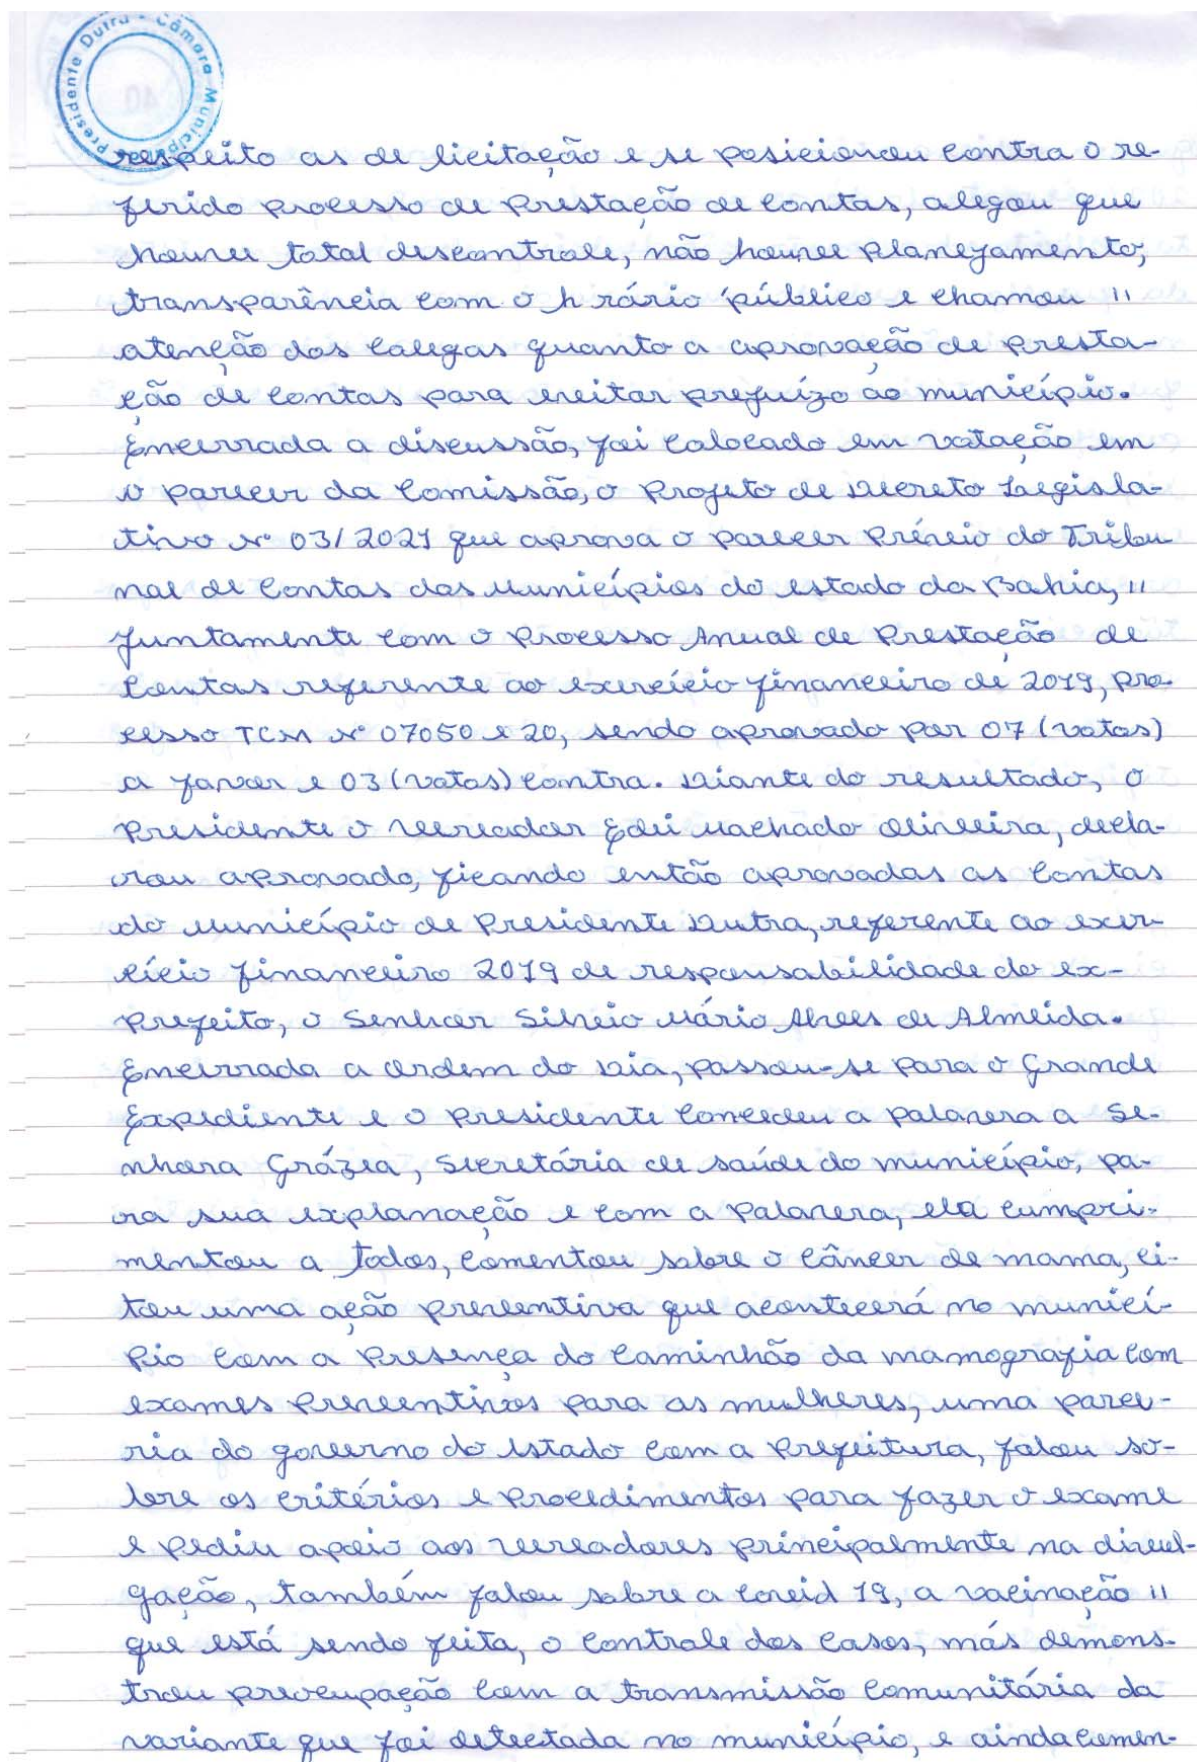 Presidente Dutra - Câmara Municipal
respeito as de licitação e se posicionou contra o re-
ferido processo de Prestação de Contas, alegou que
houve total descontrole, não houve planejamento,
transparência com o h rário público e chamou "
atenção dos colegas quanto a aprovação de presta-
ção de contas para evitar prejuízo ao município.
Encerrada a discussão, foi colocado em votação em
o parecer da Comissão, o Projeto de Decreto Legisla-
tivo Nº 03/2021 que aprova o parecer Prévio do Tribu
nal de Contas dos Municípios do estado da Bahia, "
Juntamente com o Processo Anual de Prestação de
Contas referente ao exercício financeiro de 2019, pro-
cesso TCM Nº 07050 e 20, sendo aprovado por 07 (votos)
a favor e 03 (votos) contra. Diante do resultado, o
Presidente o Vereador Edei Machado Oliveira, decla-
rou aprovado, ficando então aprovadas as Contas
do Município de Presidente Dutra, referente ao exer-
cício financeiro 2019 de responsabilidade do ex-
prefeito, o Senhor Silvio Mário Alves de Almeida.
Encerrada a Ordem do Dia, passou-se para o Grande
Expediente e o Presidente concedeu a palavra a Se-
nhora Grázia, Secretária de saúde do município, pa-
ra sua explanação e com a palavra, ela cumpri-
mentou a Todos, comentou sobre o câncer de mama, ci-
tou uma ação preventiva que acontecerá no municí-
pio com a presença do caminhão da mamografia com
exames preventivos para as mulheres, uma parce-
ria do governo do estado com a Prefeitura, falou so-
bre os critérios e procedimentos para fazer o exame
e pediu apoio aos vereadores principalmente na divul-
gação, também falou sobre a Covid 19, a vacinação "
que está sendo feita, o controle dos casos, más demons-
trou preocupação com a transmissão comunitária da
variante que foi detectada no município, e ainda comen-